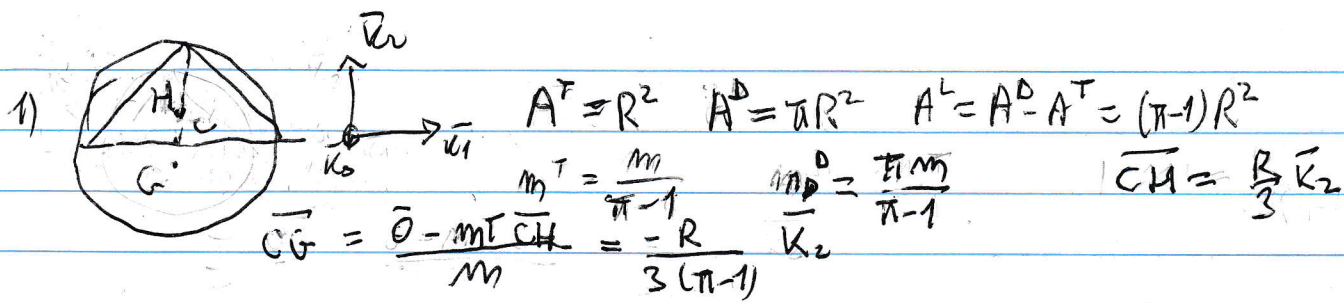 K̄₂
1) H C G K̄₀ K̄₁ Aᵀ = R² Aᴰ = πR² Aᴸ = Aᴰ - Aᵀ = (π-1)R²
mᵀ = m/(π-1) mᴰ = πm/(π-1) C̅H̅ = R/3 K̄₂
C̅G̅ = (0̄ - mᵀ C̅H̅)/m = -R/(3(π-1)) K̄₂